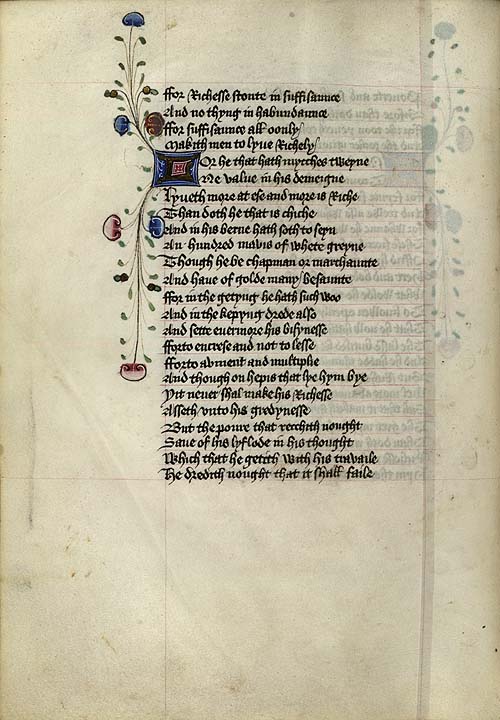 ffor Richesse stonte in suffisaunce
And no thyng in habundaunce
ffor suffisaunce all oonly
Makith men to lyue Richely
Or he that hath mycches tweyne
Ne value in his demeigne
Lyueth more at ese and more is Riche
Than doth he that is chiche
And in his berne hath soth to seyn
An hundred mavis of whete greyne
Though he be chapman or marchaunte
And haue of golde many besaunte
ffor in the getyng he hath such woo
And in the kepyng drede also
And sette euermore his bisynesse
fforto encrese and not to lesse
fforto aument and multiplie
And though on hepis that lye hym bye
Yit never shal make his Richesse
Asseth vnto his gredynesse
But the poure that recchith nought
Saue of his lyflode in his thought
Which that he getith with his travaile
He dredith nought that it shall faile